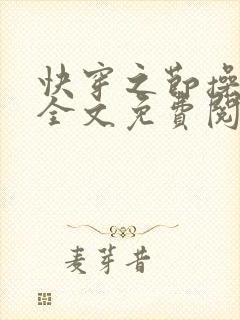 快穿之節操
全文免費閱
麦芽昔